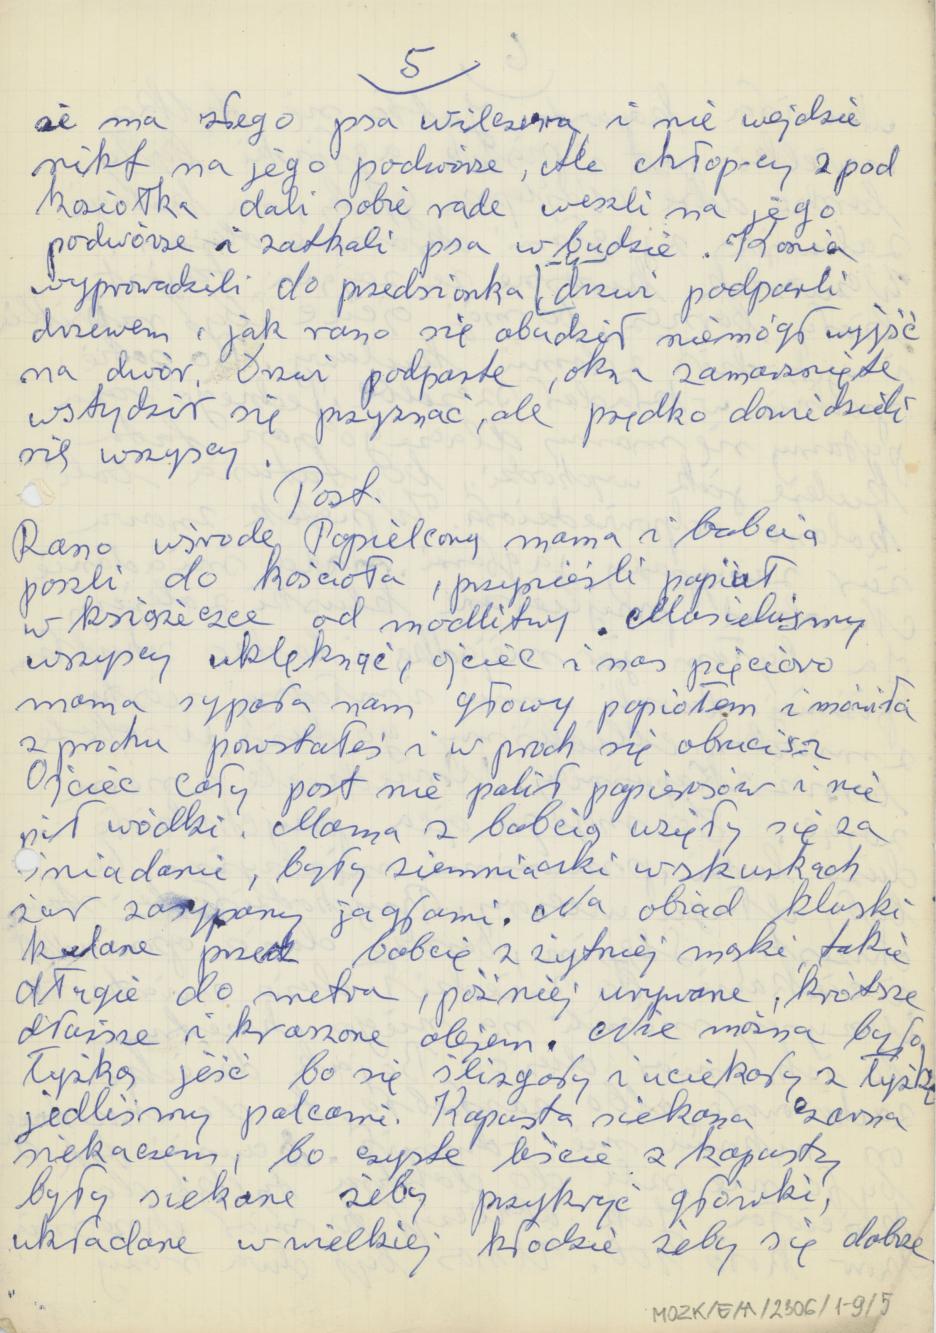 5
że ma złego psa wilczura i nie wejdzie
nikt na jego podwórze, Ale chłopcy z pod
koziołka dali sobie rade weszli na jego
podwórze i zatkali psa w budzie. Konia
wyprowadzili do przedsionka, drzwi podparli
drzewem, jak rano się obudził niemógł wyjść
na dwór, Drzwi podparte, okna zamarznięte
wstydził się przyznać, ale prędko dowiedzieli
się wszyscy.
Post.
Rano wśrode Popielcową mama i babcia
poszli do kościoła, przynieśli popiuł
w książeczce od modlitwy. Musieliśmy
wszyscy uklęknąć, ojciec i nas pięcioro
mama sypała nam głowy popiołem i mówiła
z prochu powstałeś i w proch się obrucisz
Ojciec cały post nie palił papierosów i nie
pił wódki. Mama z babcią wzięły się za
śniadanie, były ziemniaki w skurkach
żur zasypany jagłami. Na obiad kluski
kulane przez babcię z żytniej mąki takie
długie do metra, później urywane, krótsze
dłuższe i kraszone olejem. Nie można było
łyżką jeść bo się ślizgały i uciekały z łyżki
jedliśmy palcami. Kapusta siekana czarna
siekaczem, bo czyste liście z kapusty
były siekane żeby przykryć główki,
układane w wielkiej kłodzie żeby się dobrze
MOZK/E/A/2306/1-9/5